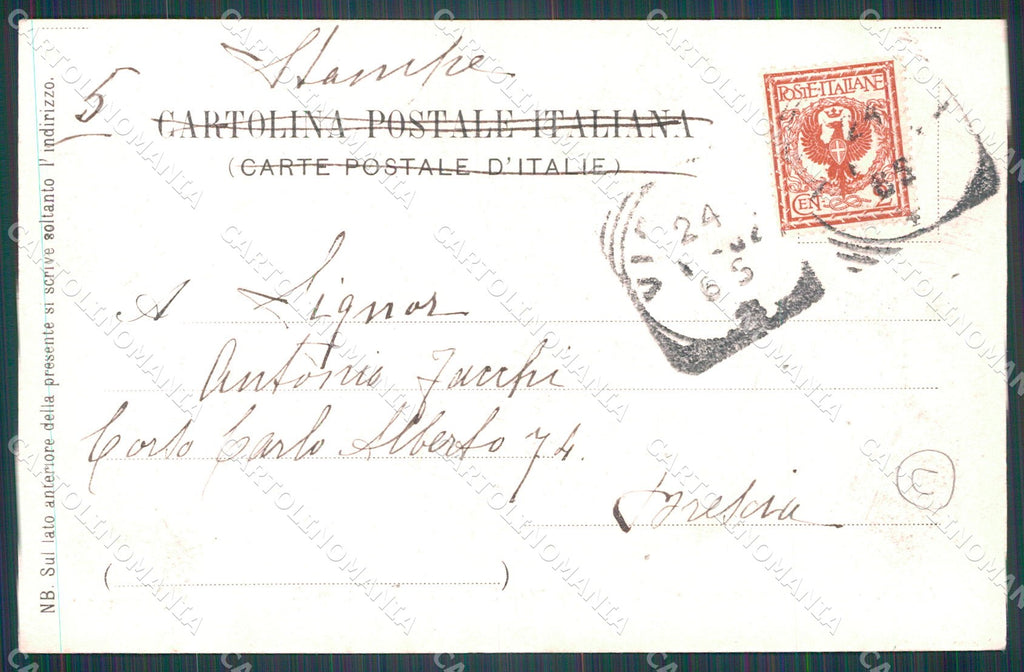 Stampe
5
CARTOLINA POSTALE ITALIANA
(CARTE POSTALE D'ITALIE)
POSTE·ITALIANE
CEN 2
24
05
A Signor
Antonio Facchi
Corso Carlo Alberto 74.
Brescia
NB. Sul lato anteriore della presente si scrive soltanto l'indirizzo.
CARTOLINOMANIA